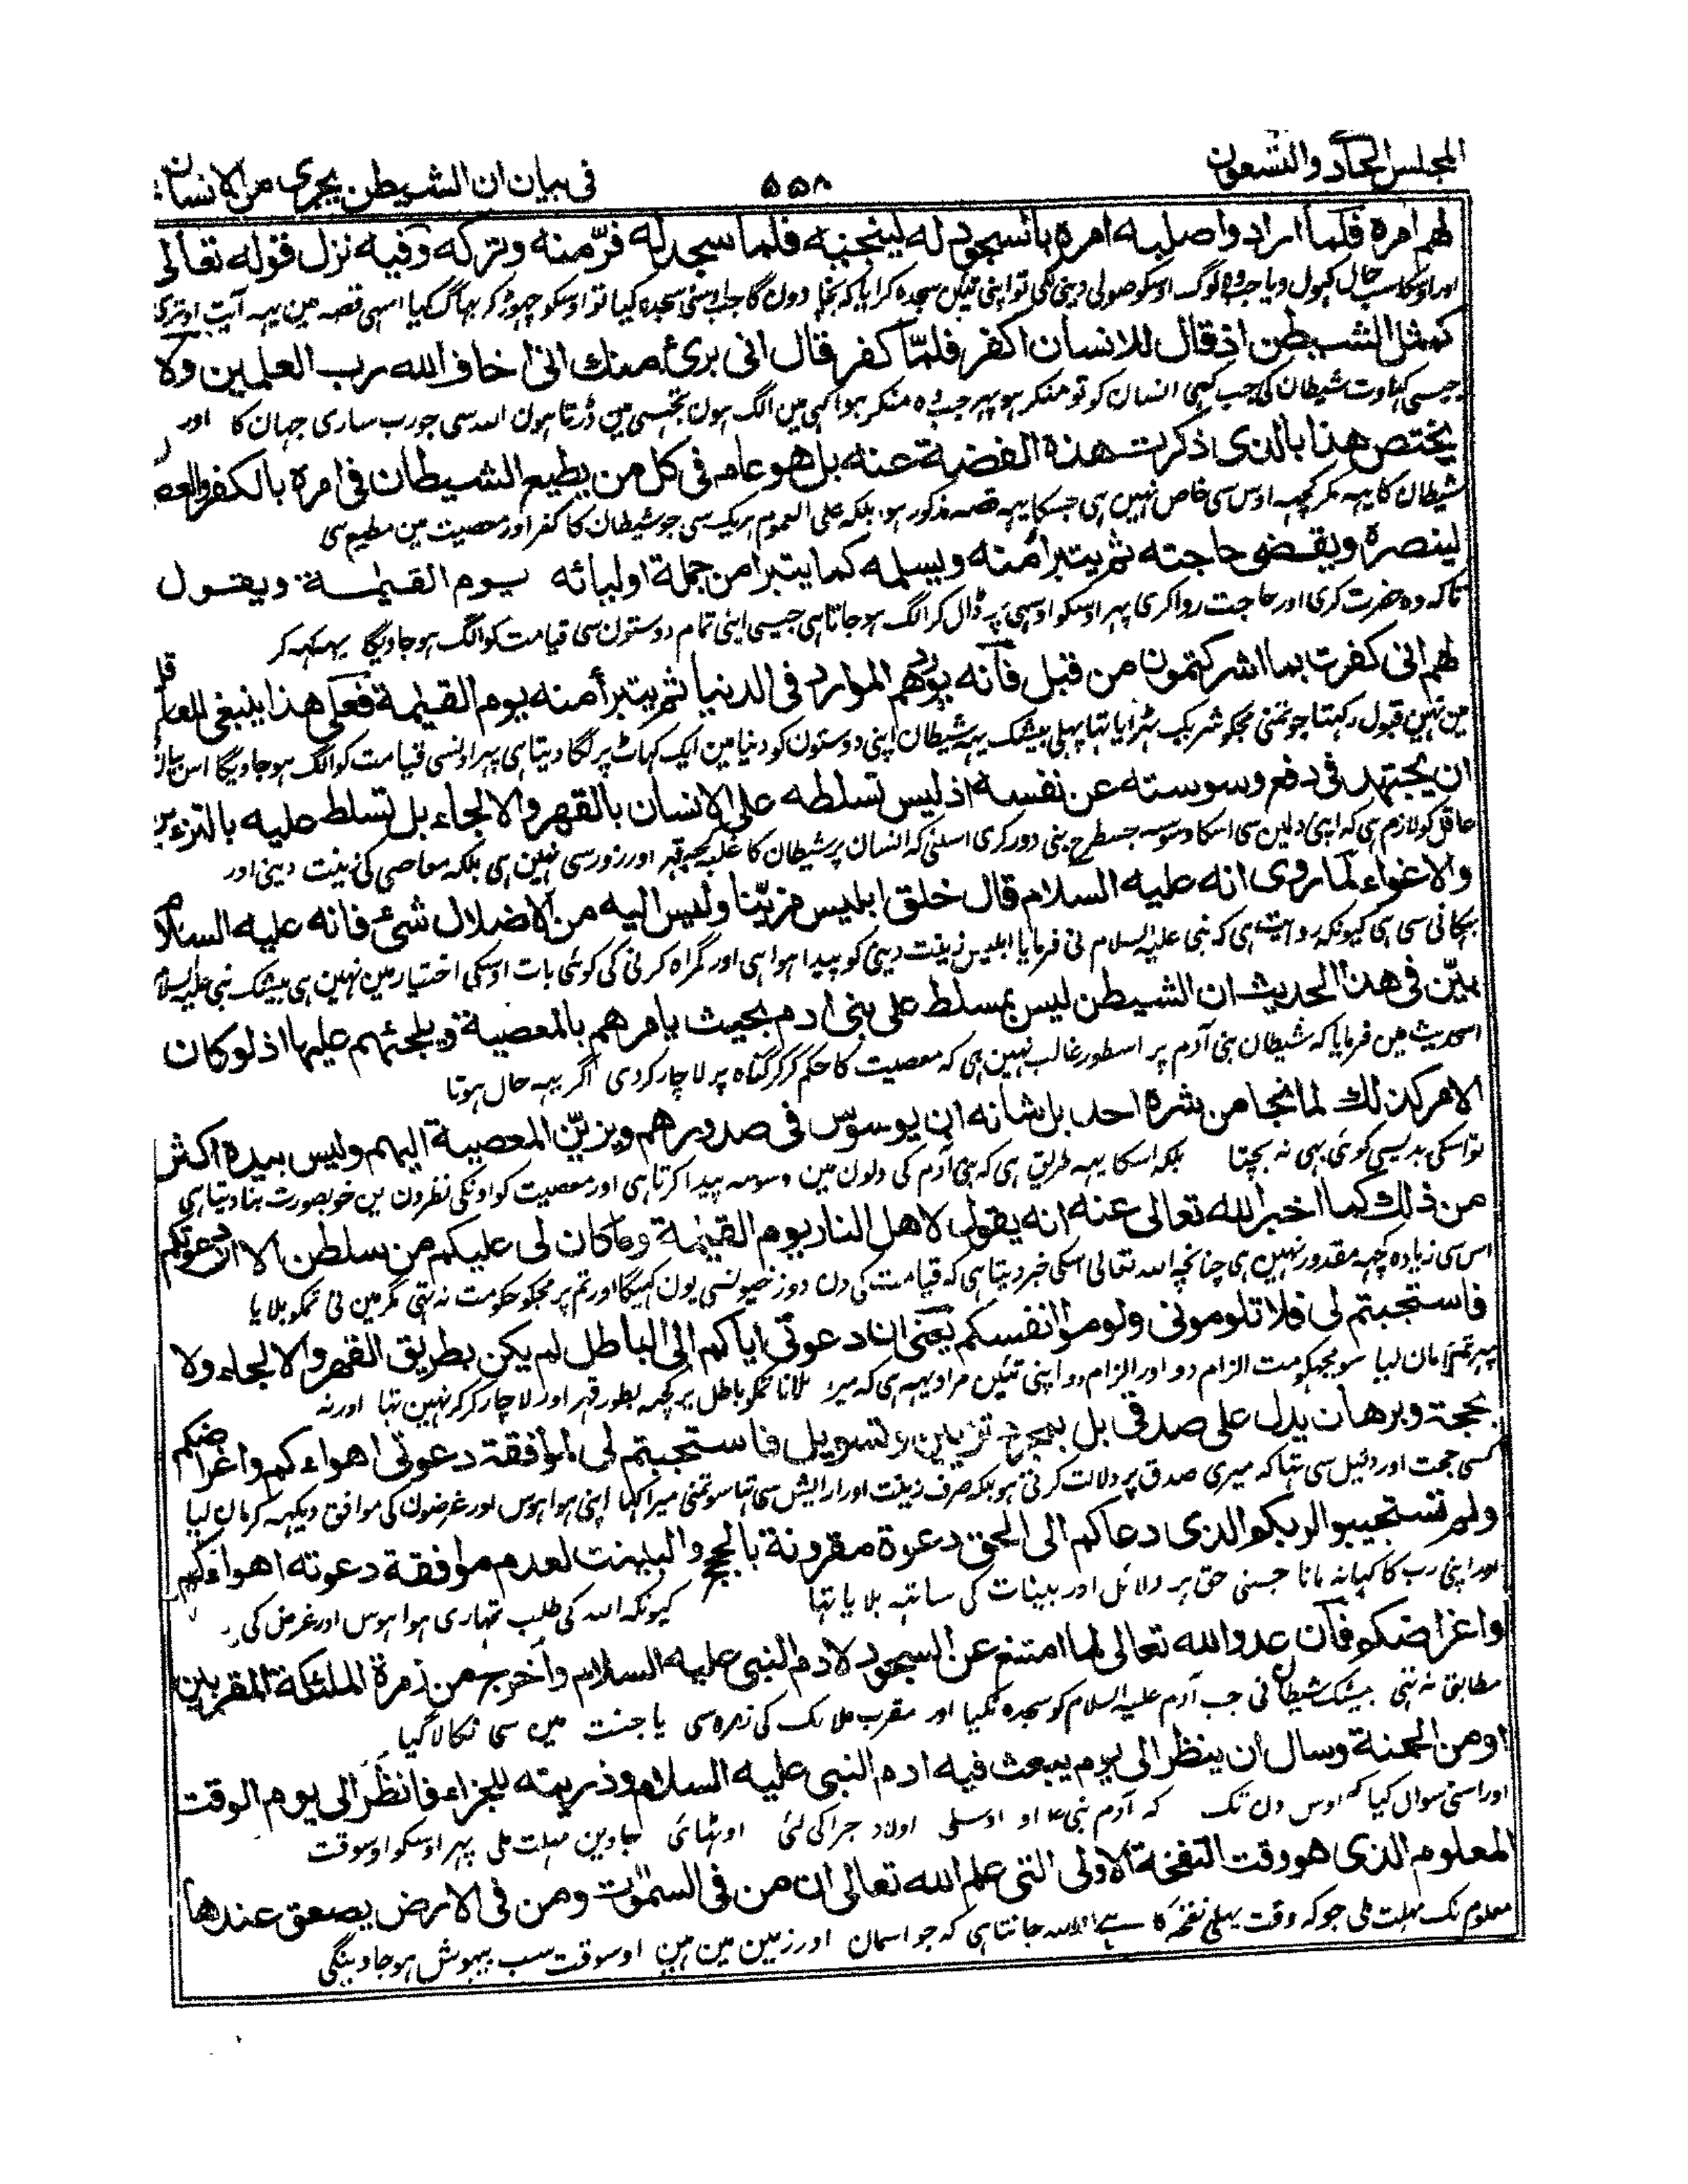 المجلس الحادو التسعون ٥٥٨ فى بيان ان الشيطن يجرى من الانسان
لهم امره فلما ارادوا صلبه امره بالسجود له لينجيه فلما سجد له فرّ منه وتركه وفيه نزل قوله تعالى
اور اوسکا سب حال کہول دیا جب وہ لوگ اوسکو صولی دینی لگی تو اپنی تئین سجدہ کرایا کہ بچا دون گا جب اوسنی سجدہ کیا تو اوسکو چہوڑ کر بہاگ گیا اسہی قصہ مین یہہ آیت اوتری
كمثل الشيطن اذ قال للانسان اكفر فلمّا كفر قال انى برئ منك انى اخاف الله رب العلمين ولا
جیسی کہاوت شیطان کی جب کہی انسان کو تو منکر ہو پہر جب وہ منکر ہوا کہی مین الگ ہون تجہسی مین ڈرتا ہون اللہ سی جو رب ساری جہان کا اور
يختص هذا بالذى ذكرت هذه القصة عنه بل هو عام فى كل من يطيع الشيطان فى امره بالكفر والعص
شیطان کا یہہ مکر کچہہ اوس سی خاص نہین ہی جسکا یہہ قصہ مذکور ہوا بلکہ علی العموم ہر یک سی جو شیطان کا کفر اور معصیت مین مطیع ہی
لينصره ويقضى حاجته ثم يتبرأ منه ويسلمه كما يتبرأ من جملة اوليائه يوم القيمة ويقول
تاکہ وہ نصرت کری اور حاجت روا کری پہر اوسکو اوسی پہ ڈال کر الگ ہو جاتا ہی جیسی اپنی تمام دوستون سی قیامت کو الگ ہو جاویگا یہہ کہہ کر
لهم انى كفرت بما اشركتمون من قبل فانه يوردهم الموارد فى الدنيا ثم يتبرأ منه يوم القيمة فعلى هذا ينبغى للعاقل
مین نہین قبول رکہتا جو تمنی مجکو شریک ٹہرایا تہا پہلی بیشک یہہ شیطان اپنی دوستون کو دنیا مین ایک گہاٹ پر لگا دیتا ہی پہر اونسی قیامت کو الگ ہو جاویگا اس
ان يجتهد فى دفع وسوسته عن نفسه اذ ليس تسلطه على الانسان بالقهر والالجاء بل تسلط عليه بالتزيين
عاقل کو لازم ہی کہ اپنی دلین سی اسکا وسوسہ جسطرح بنی دور کری اسلئی کہ انسان پر شیطان کا غلبہ کچہہ قہر اور زور سی نہین ہی بلکہ معاصی کی زینت دینی اور
والاغواء لما روى انه عليه السلام قال خلق ابليس مزيّنا وليس اليه من الاضلال شئ فانه عليه السلام
بہکانی سی ہی کیونکہ روایت ہی کہ نبی علیہ السلام نی فرمایا ابلیس زینت دینی کو پیدا ہوا ہی اور گمراہ کرنی کی کوئی بات اوسکی اختیار مین نہین ہی بیشک نبی علیہ السلام
بيّن فى هذا الحديث ان الشيطن ليس بمسلط على بنى ادم بحيث يامرهم بالمعصية ويلجئهم عليها اذ لو كان
اسحدیث مین فرمایا کہ شیطان بنی آدم پر اسطور غالب نہین ہی کہ معصیت کا حکم کر کر گناہ پر لاچار کر دی اگر یہہ حال ہوتا
الامر كذلك لما نجا من شره احد بل شانه ان يوسوس فى صدورهم ويزيّن المعصية اليهم وليس بيده اكثر
تو اسکی بدیسی کوئی بہی نہ بچتا بلکہ اسکا یہہ طریق ہی کہ بنی آدم کی دلون مین وسوسہ پیدا کرتا ہی اور معصیت کو اونکی نظرون مین خوبصورت بنا دیتا ہی
من ذلك كما اخبر الله تعالى عنه انه يقول لاهل النار يوم القيمة وما كان لى عليكم من سلطن الا ان دعوتكم
اس سی زیادہ کچہہ مقدور نہین ہی چنانچہ اللہ تعالی اسکی خبر دیتا ہی کہ قیامت کی دن دوزخیونسی یون کہیگا اور تم پر مجکو حکومت نہ تہی مگر مین نی تمکو بلایا
فاستجبتم لى فلا تلومونى ولوموا انفسكم يعنى ان دعوتى اياكم الى الباطل لم يكن بطريق القهر والالجاء ولا
پہر تمنی مان لیا سو مجہکو مت الزام دو اور الزام دو اپنی تئین مراد یہہ ہی کہ میرا بلانا تمکو باطل پر کچہہ بطور قہر اور لاچار کر کر نہین تہا اور نہ
بحجة وبرهان يدل على صدقى بل بمجرد تزيين وتسويل فاستجبتم لى لموافقة دعوتى اهواءكم واغراضكم
کسی حجت اور دلیل سی تہا کہ میری صدق پر دلالت کرتی ہو بلکہ صرف زینت اور ارایش سی تہا سو تمنی میرا کہا اپنی ہوا ہوس اور غرضون کی موافق دیکہہ کر مان لیا
ولم تستجيبوا لربكم الذى دعاكم الى الحق دعوة مقرونة بالحجج والبينت لعدم موافقة دعوته اهواءكم
اور اپنی رب کا کہا نہ مانا جسنی حق پر دلائل اور بینات کی ساتہہ بلایا تہا کیونکہ اللہ کی طلب تمہاری ہوا ہوس اور غرض کی
واغراضكم فان عدو الله تعالى لما امتنع عن السجود لادم النبى عليه السلام واخرج من زمرة الملئكة المقربين
مطابق نہ تہی بیشک شیطان نی جب آدم علیہ السلام کو سجدہ نکیا اور مقرب ملائک کی زمرہ سی یا جنت مین سی نکالا گیا
او من الجنة وسال ان ينظر الى يوم يبعث فيه ادم النبى عليه السلام وذريته للجزاء فانظر الى يوم الوقت
اور اسنی سوال کیا کہ اوس دن تک کہ آدم نبی ع او اوسکی اولاد جزا کی لئی اوٹہائی جاوین مہلت ملی پہر اوسکو اوسوقت
المعلوم الذى هو وقت النفخة الاولى التى علم الله تعالى ان من فى السموت ومن فى الارض يصعق عندها
معلوم تک مہلت ملی جو کہ وقت پہلی نفخہ کا ہے اللہ جانتا ہی کہ جو اسمان اور زمین مین ہین اوسوقت سب بیہوش ہو جاوینگی